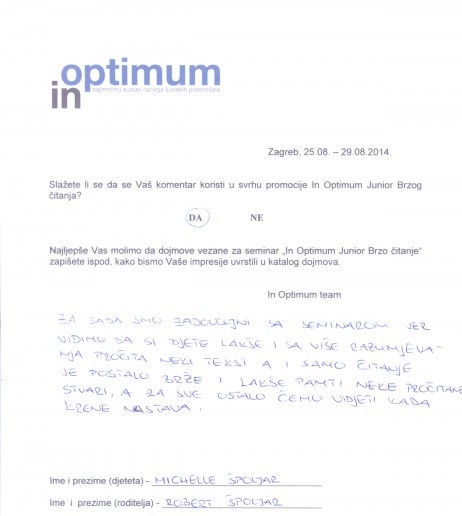 optimum
in
najmoćniji sustav razvoja ljudskih potencijala
Zagreb, 25.08. – 29.08.2014.
Slažete li se da se Vaš komentar koristi u svrhu promocije In Optimum Junior Brzog
čitanja?
DA NE
Najljepše Vas molimo da dojmove vezane za seminar „In Optimum Junior Brzo čitanje“
zapišete ispod, kako bismo Vaše impresije uvrstili u katalog dojmova.
In Optimum team
ZA SADA SMO ZADOVOLJNI SA SEMINAROM JER
VIDIMO DA SI DJETE LAKŠE I SA VIŠE RAZUMJEVA-
NJA PROČITA NEKI TEKST A I SAMO ČITANJE
JE POSTALO BRŽE I LAKŠE PAMTI NEKE PROČITANE
STVARI, A ZA SVE OSTALO ĆEMU VIDJETI KADA
KRENE NASTAVA.
Ime i prezime (djeteta) - MICHELLE ŠPOLJAR
Ime i prezime (roditelja) - ROBERT ŠPOLJAR